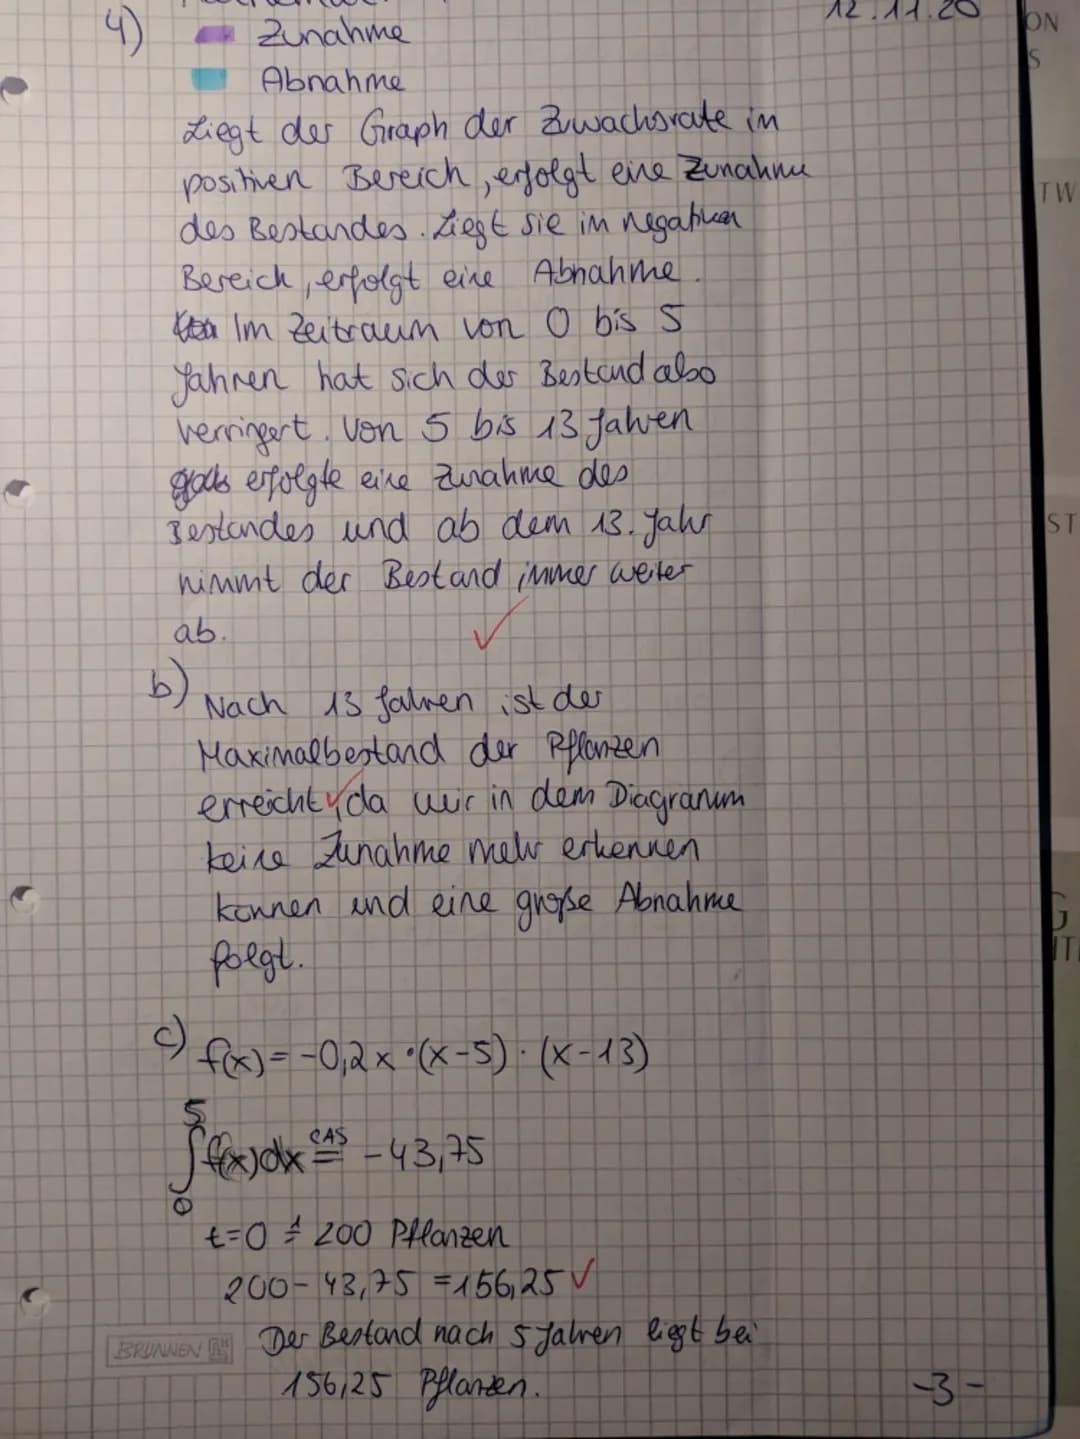 12.11.20
4) Zunahme
Abnahme
Liegt der Graph der Zuwachsrate im
positiven Bereich, erfolgt eine Zunahme
des Bestandes. Liegt sie im negativen
Bereich, erfolgt eine Abnahme.
Im Zeitraum von 0 bis 5
Jahren hat sich der Bestand also
verringert. Von 5 bis 13 Jahren
erfolgte eine Zunahme des
Bestandes und ab dem 13. Jahr
nimmt der Bestand immer weiter
ab.
b) Nach 13 Jahren ist der
Maximalbestand der Pflanzen
erreicht, da wir in dem Diagramm
keine Zunahme mehr erkennen
können und eine große Abnahme
folgt.
c) f(x) = -0,2x · (x-5) · (x-13)
5
∫ f(x)dx CAS = -43,75
0
t=0 ≙ 200 Pflanzen
200 - 43,75 = 156,25 ✓
Der Bestand nach 5 Jahren liegt bei
BRUNNEN
156,25 Pflanzen.
-3-
ON
S
TW
ST
G
IT